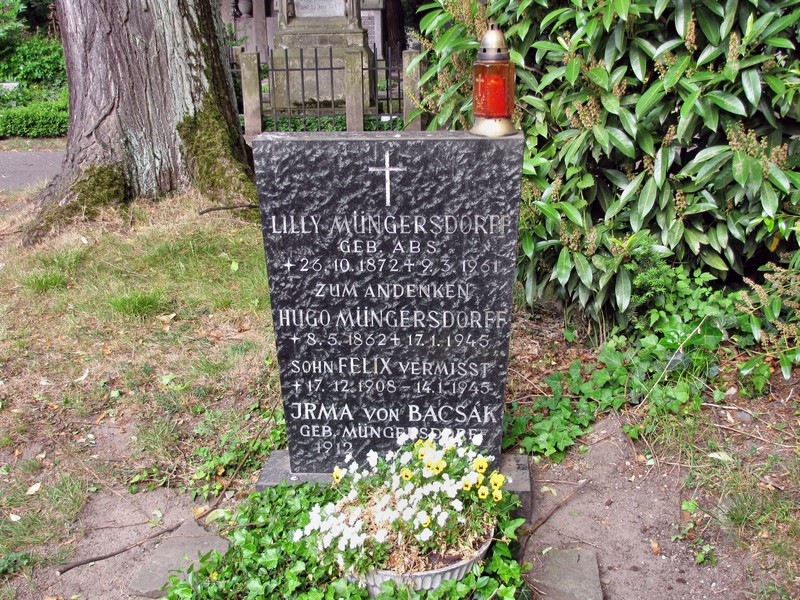 LILLY MÜNGERSDORFF
GEB. ABS
+ 26.10.1872 + 9.3.1961
ZUM ANDENKEN
HUGO MÜNGERSDORFF
+ 8.5.1862 + 17.1.1945
SOHN FELIX VERMISST
+ 17.12.1908 - 14.1.1945
IRMA VON BACSÁK
GEB. MÜNGERSDORFF
1912